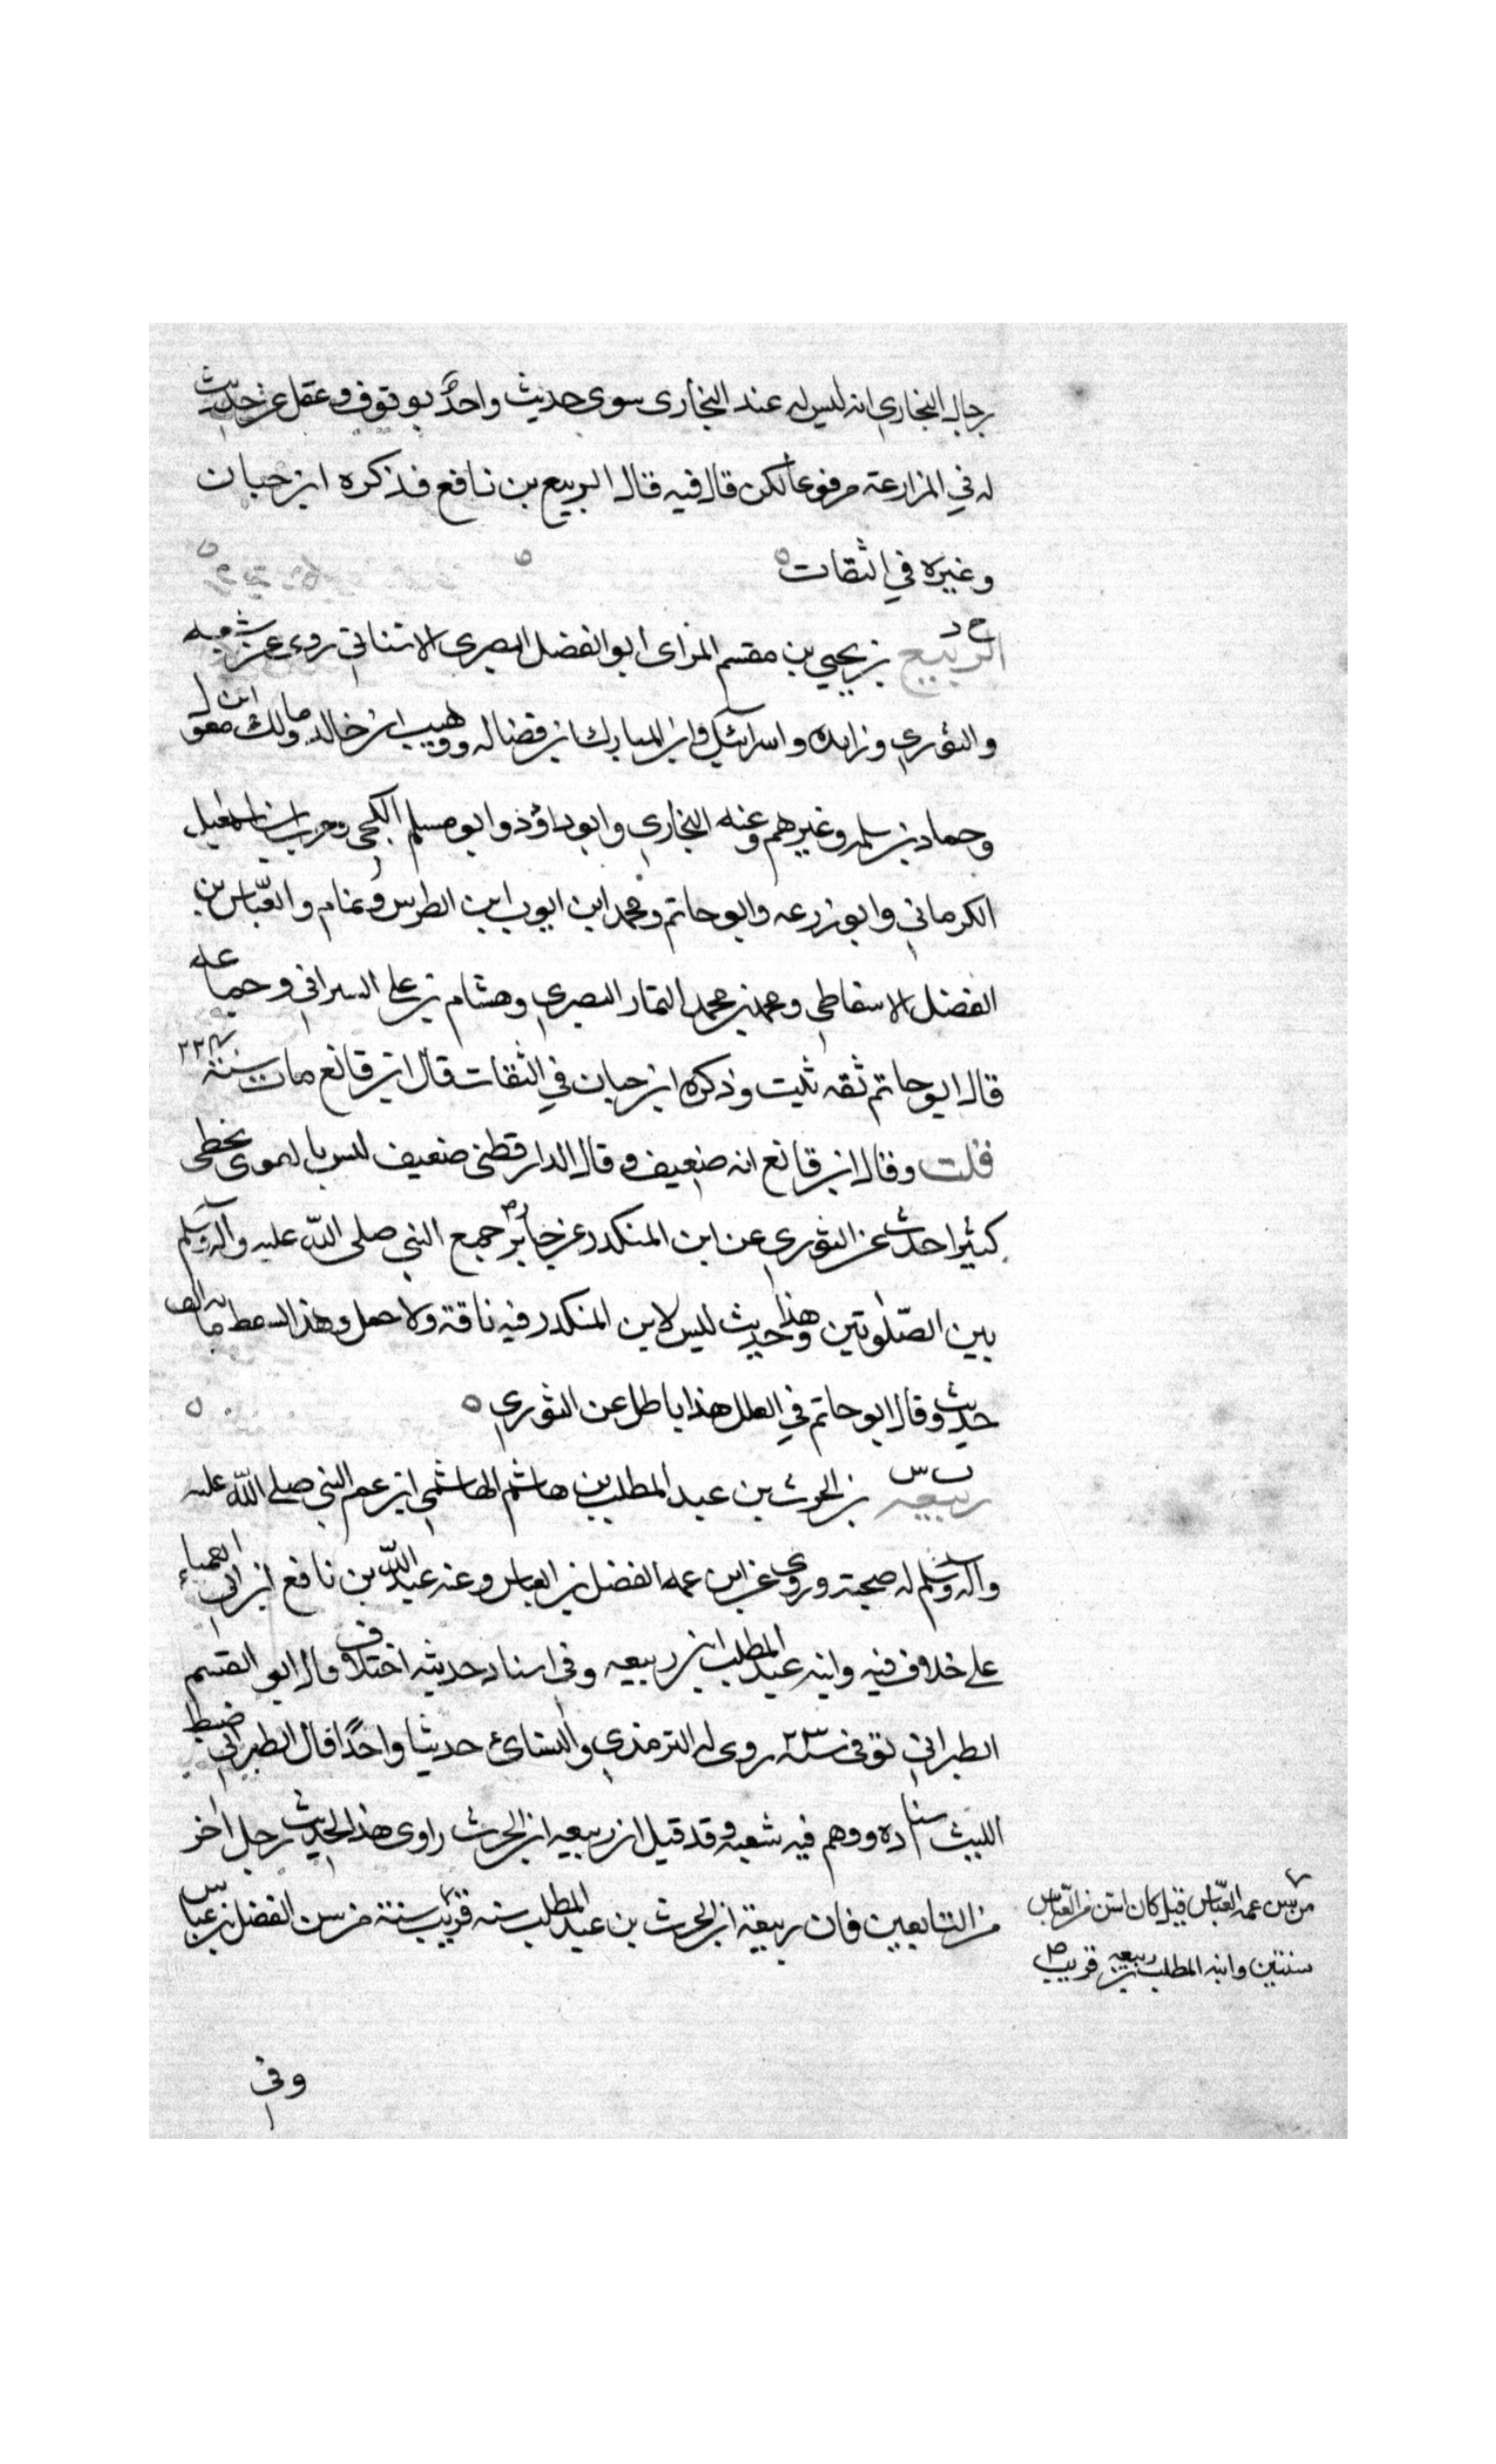 رجال البخاري انه ليس له عند البخاري سوى حديث واحد موقوف وغفل عن حديث
له في المزارعة مرفوعا لكن قال فيه قال الربيع بن نافع فذكره ابن حبان
وغيره في الثقات
خ د
الربيع بن يحيى بن مقسم المراى ابو الفضل البصري الاشناني روى عن شعبه
والثوري وزايده واسرائيل وابن المبارك ابن فضاله ووهيب ابن خالد ومالك ابن مغول
وحماد بن سلمه وغيرهم وعنه البخاري وابو داؤد وابو مسلم الكجي وحرب ابن اسمعيل
الكرماني وابو زرعه وابو حاتم ومحمد ابن ايوب ابن الطريس وتمام والعبّاس بن
الفضل الاسفاطي ومحمد بن محمد التمار البصري وهشام بن علي السرافي وجماعه
قال ابو حاتم ثقه ثبت وذكره ابن حبان في الثقات قال ابن قانع مات سنة ٢٢٤
قلت وقال ابن قانع انه ضعيف وقال الدارقطني ضعيف ليس بالقوى يخطي
كثيرا حدث عن الثوري عن ابن المنكدر عن جابر جمع النبي صلى الله عليه وآله وسلم
بين الصّلوتين وهذا حديث ليس لابن المنكدر فيه ناقة ولا جمل وهذا السقط مايه الف
حديث وقال ابو حاتم في العلل هذا باطل عن الثوري
ت س
ربيعه بن الحرث بن عبد المطلب بن هاشم الهاشمي ابن عم النبي صلى الله عليه
وآله وسلم له صحبته وروى عن ابن عمه الفضل بن العباس وعنه عبد الله بن نافع ابن ابي العمياء
على خلاف فيه وابنه عبد المطلب ابن ربيعه وفي اسناد حديثه اختلاف قال ابو القسم
الطبراني توفي سنة ٢٣ روى له الترمذي والنسائ حديثا واحدًا قال الطبراني ضبط
الليث اسناده ووهم فيه شعبه وقد قيل ان ربيعه ابن الحرث راوى هذا الحديث رجل اخر
من التابعين فان ربيعة ابن الحرث بن عبد المطلب سنه قريب سنة من سن الفضل بن عباس
من سن عمه العبّاس قيل كان اسن من العبّاس
سنتين وابنه المطلب بن ربيعه قريب
وفي